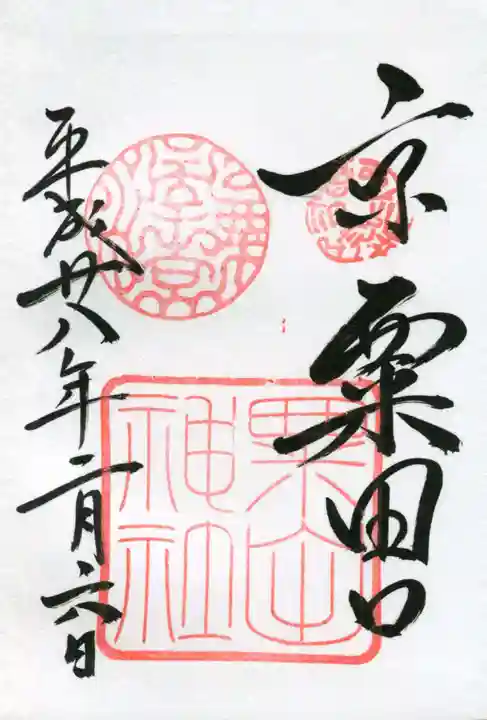 京 粟田口
平成廿八年二月六日
粟田
神社